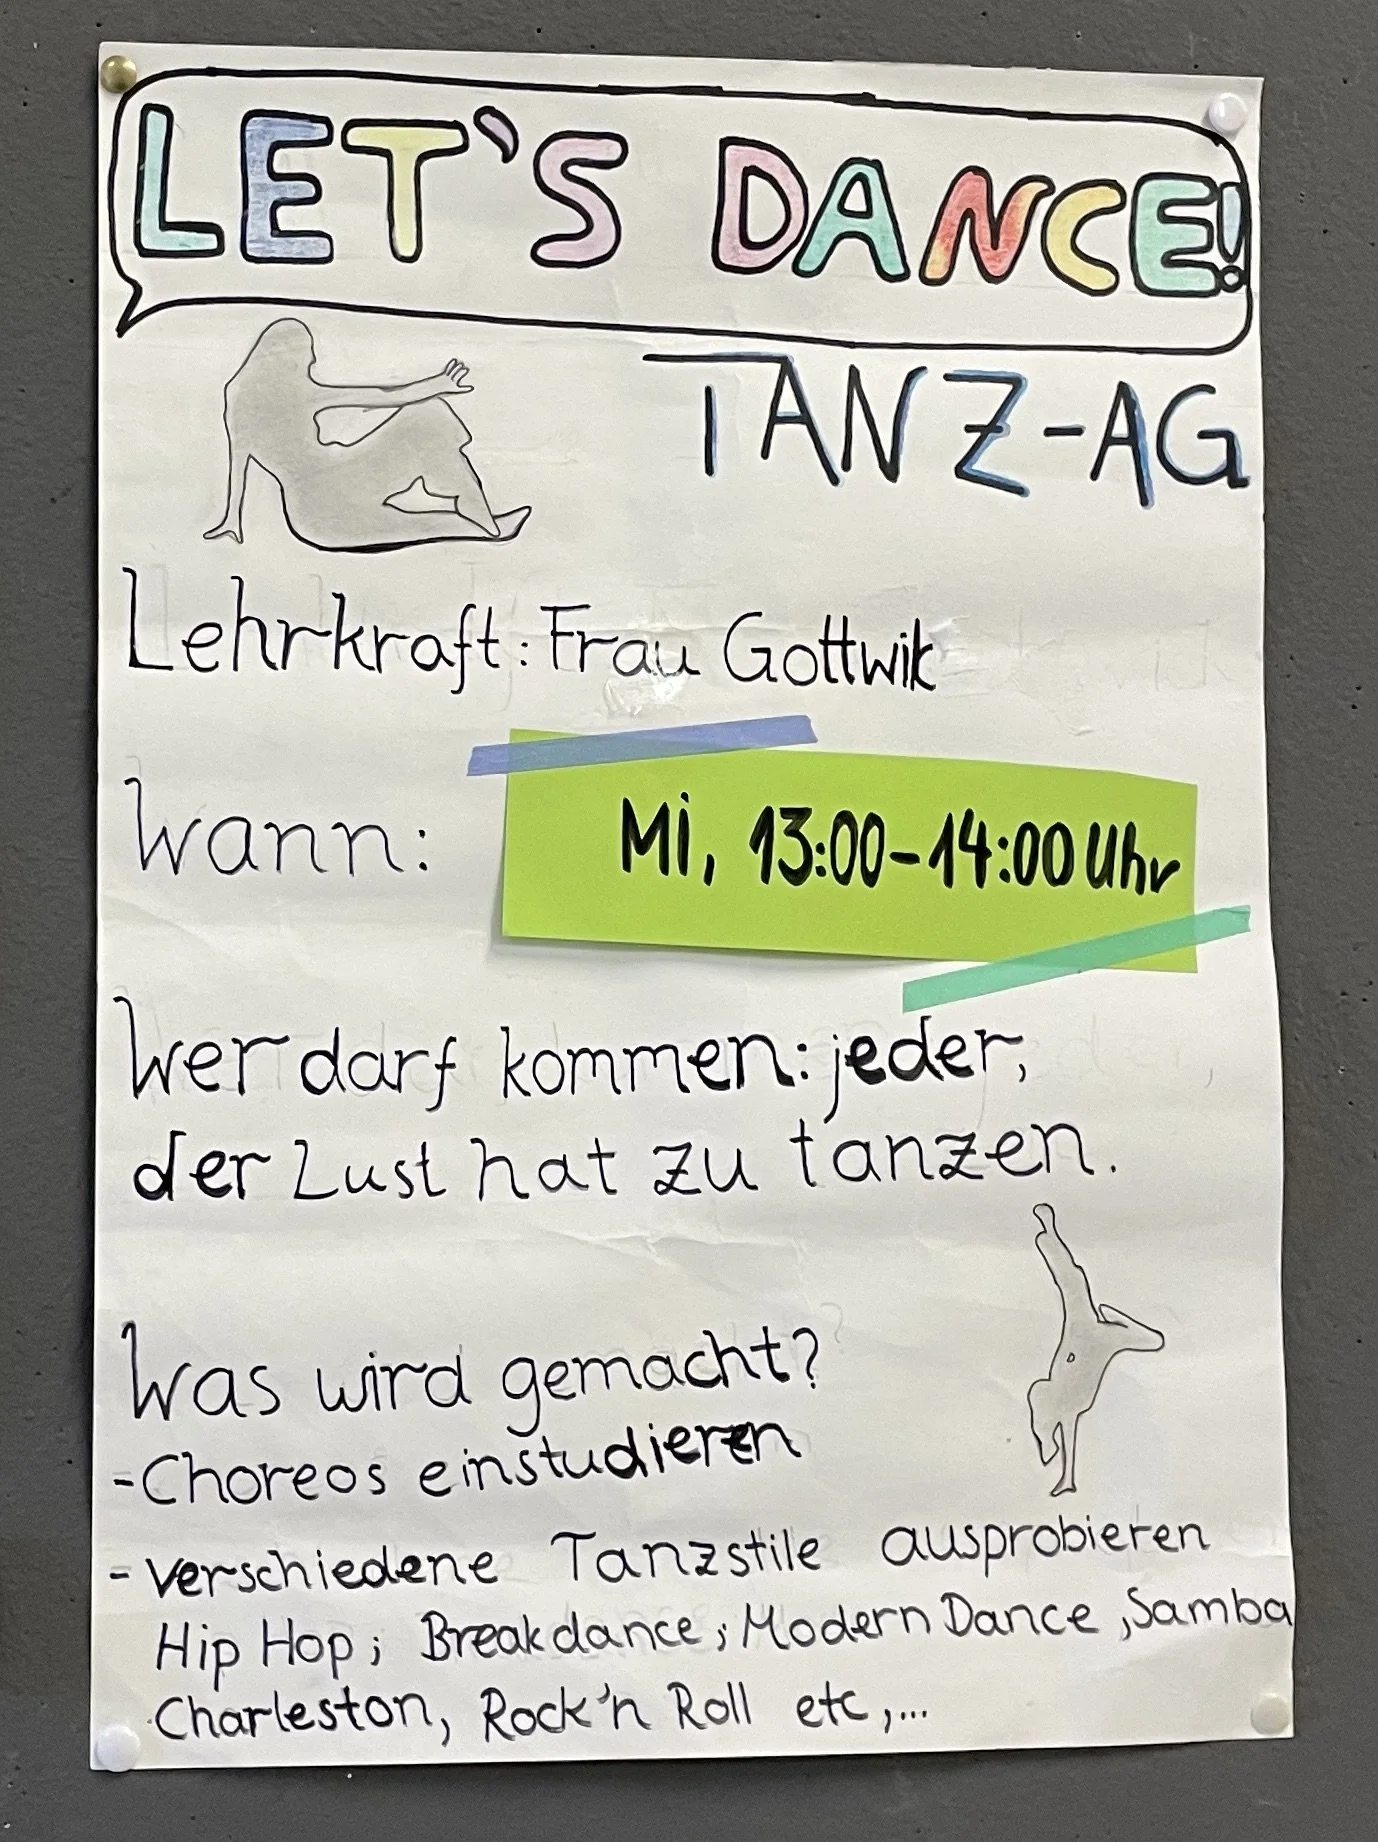 LET'S DANCE!
TANZ-AG
Lehrkraft: Frau Gottwik
Wann: Mi, 13:00-14:00 Uhr
Wer darf kommen: jeder,
der Lust hat zu tanzen.
Was wird gemacht?
-Choreos einstudieren
- verschiedene Tanzstile ausprobieren
Hip Hop; Breakdance; Modern Dance, Samba
Charleston, Rock'n Roll etc,...